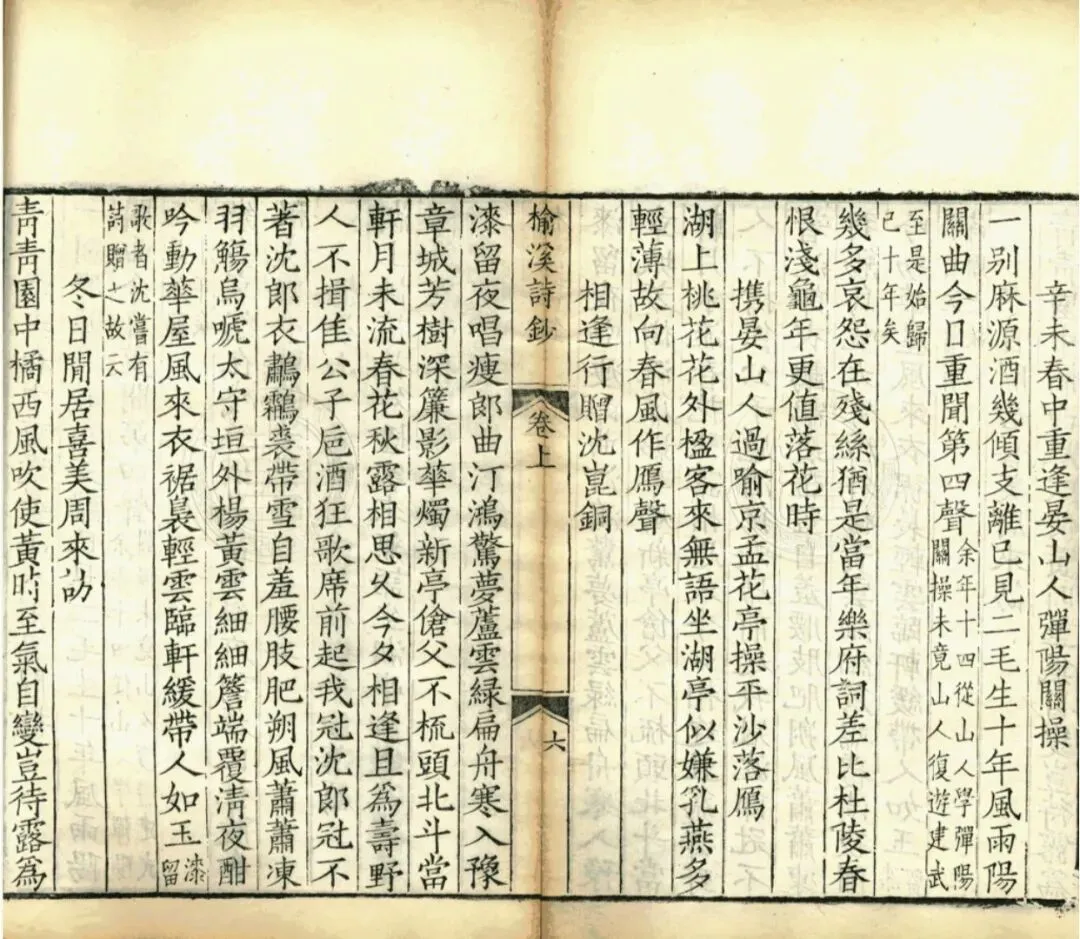 辛未春中重逢晏山人彈陽關操
一别麻源酒幾傾支離已見二毛生十年風雨陽
關曲今日重聞第四聲余年十四從山人學彈陽
關操未竟山人復遊建武
至是始歸
已十年矣
幾多哀怨在殘絲猶是當年樂府詞差比杜陵春
恨淺龜年更值落花時
携晏山人過喻京孟花亭操平沙落鴈
湖上桃花花外楹客來無語坐湖亭似嫌乳燕多
輕薄故向春風作鴈聲
相逢行贈沈崑銅
榆溪詩鈔
卷上
六
漆留夜唱瘦郎曲汀鴻驚夢蘆雲緑扁舟寒入豫
章城芳樹深簾影華燭新亭傖父不梳頭北斗當
軒月未流春花秋露相思久今夕相逢且爲壽野
人不揖佳公子巵酒狂歌席前起我冠沈郎冠不
著沈郎衣鸘裘帶雪自羞腰肢肥朔風蕭蕭凍
羽觴烏嗁太守垣外楊黃雲細細簷端覆淸夜酣
吟動華屋風來衣裾裊輕雲臨軒緩帶人如玉漆
留
歌者沈嘗有
詩贈之故云
冬日閒居喜美周來訪
靑靑園中橘西風吹使黃時至氣自變豈待露爲